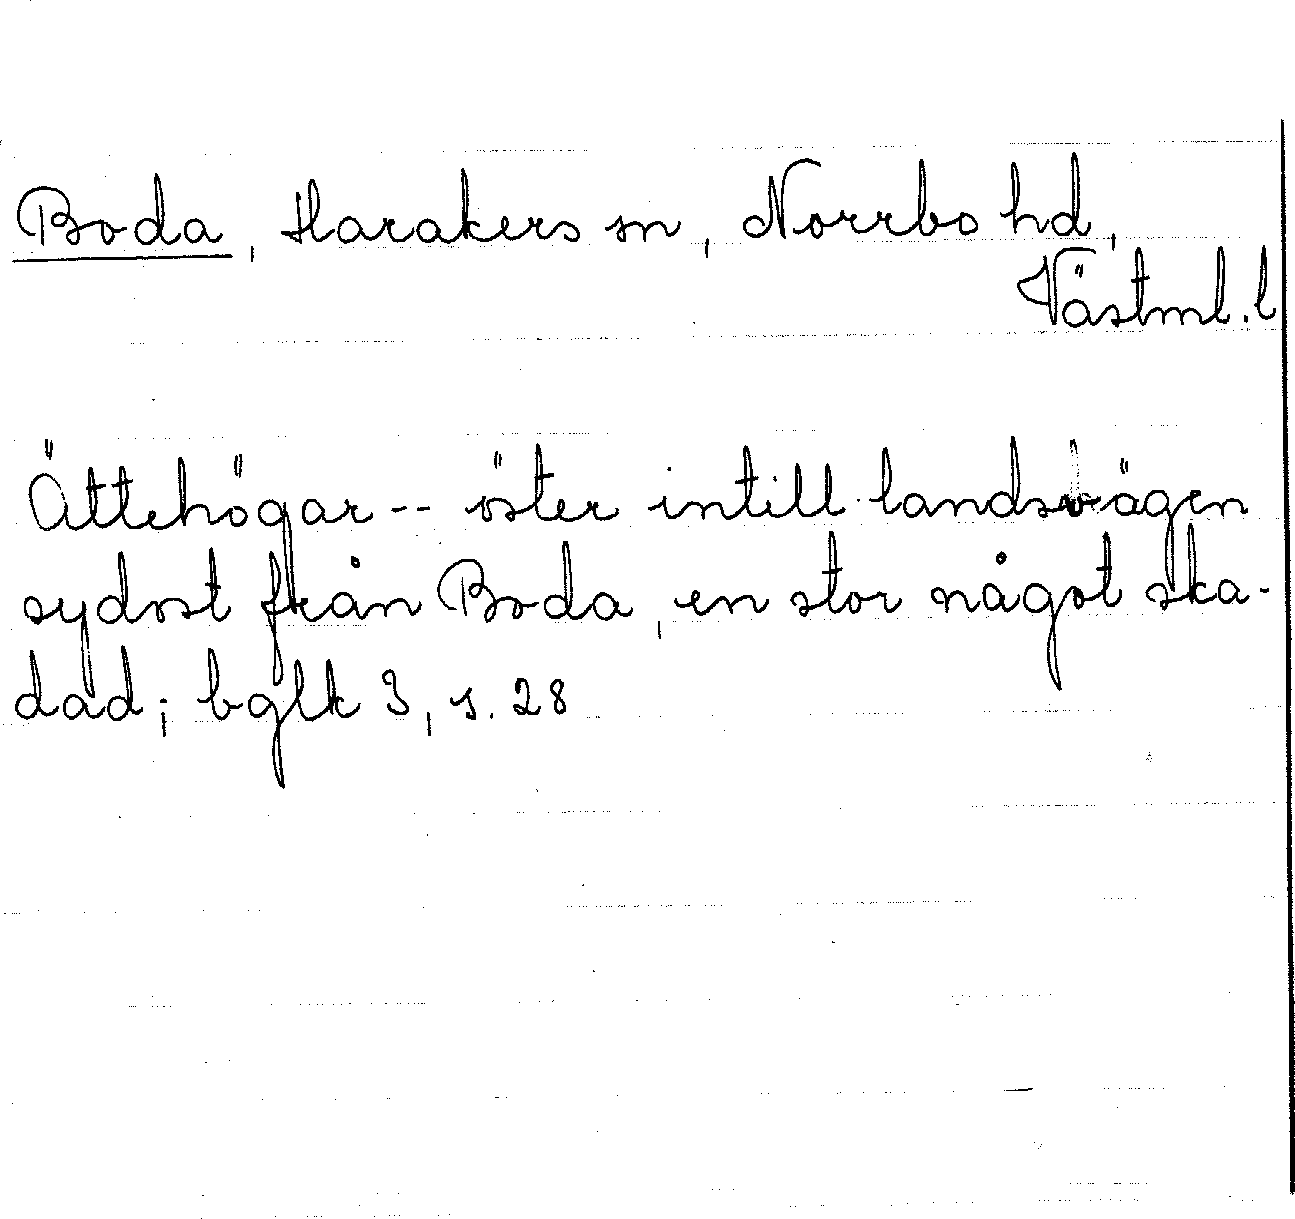 Boda, Harakers sn, Norrbo hd,
Västml. l
Ättehögar -- öster intill landsvägen
sydost från Boda, en stor något ska-
dad; bglk 3, s. 28